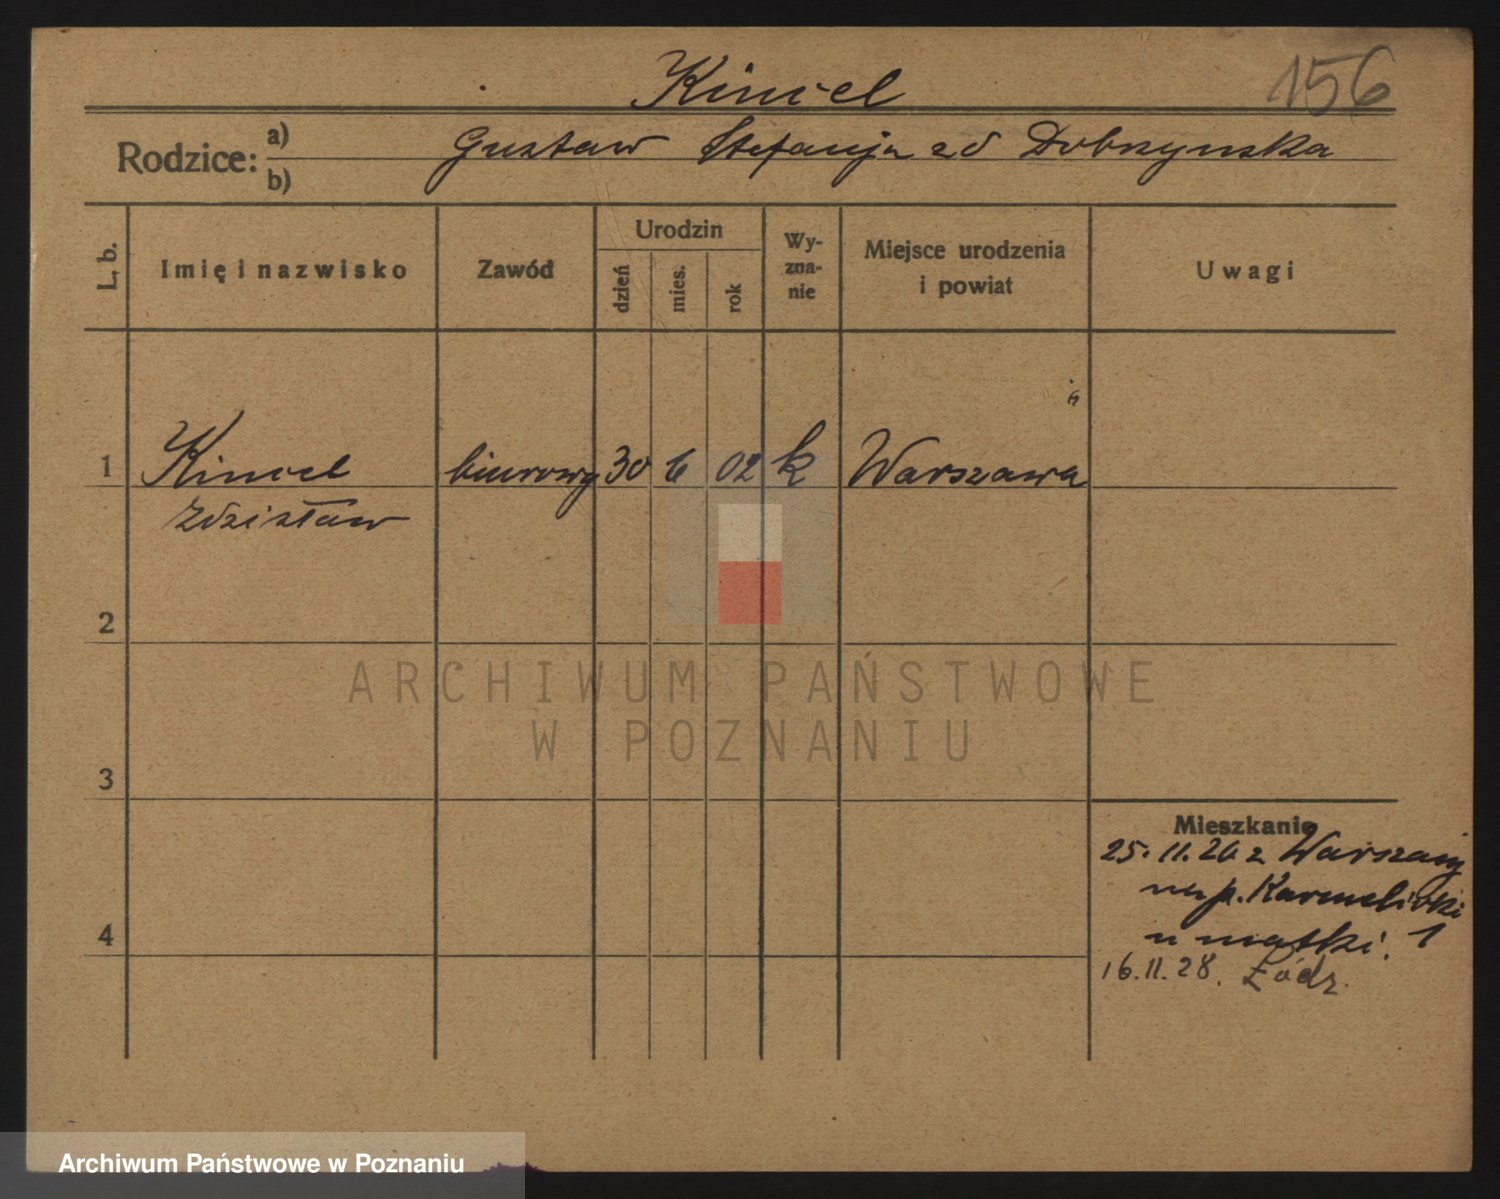 Kincel
156
Rodzice: a) Gustaw Stefanja zd Dobrzynska
b)
L. b.
Imię i nazwisko
Zawód
Urodzin
dzień
mies.
rok
Wy-
zna-
nie
Miejsce urodzenia
i powiat
Uwagi
1 Kincel biurowy 30 6 02 k Warszawa
Zdzisław
2
3
4
Mieszkanie
25.11.26 z Warszawy
u matki. 1
16.11.28. Łódz.
ARCHIWUM PAŃSTWOWE
W POZNANIU
Archiwum Państwowe w Poznaniu